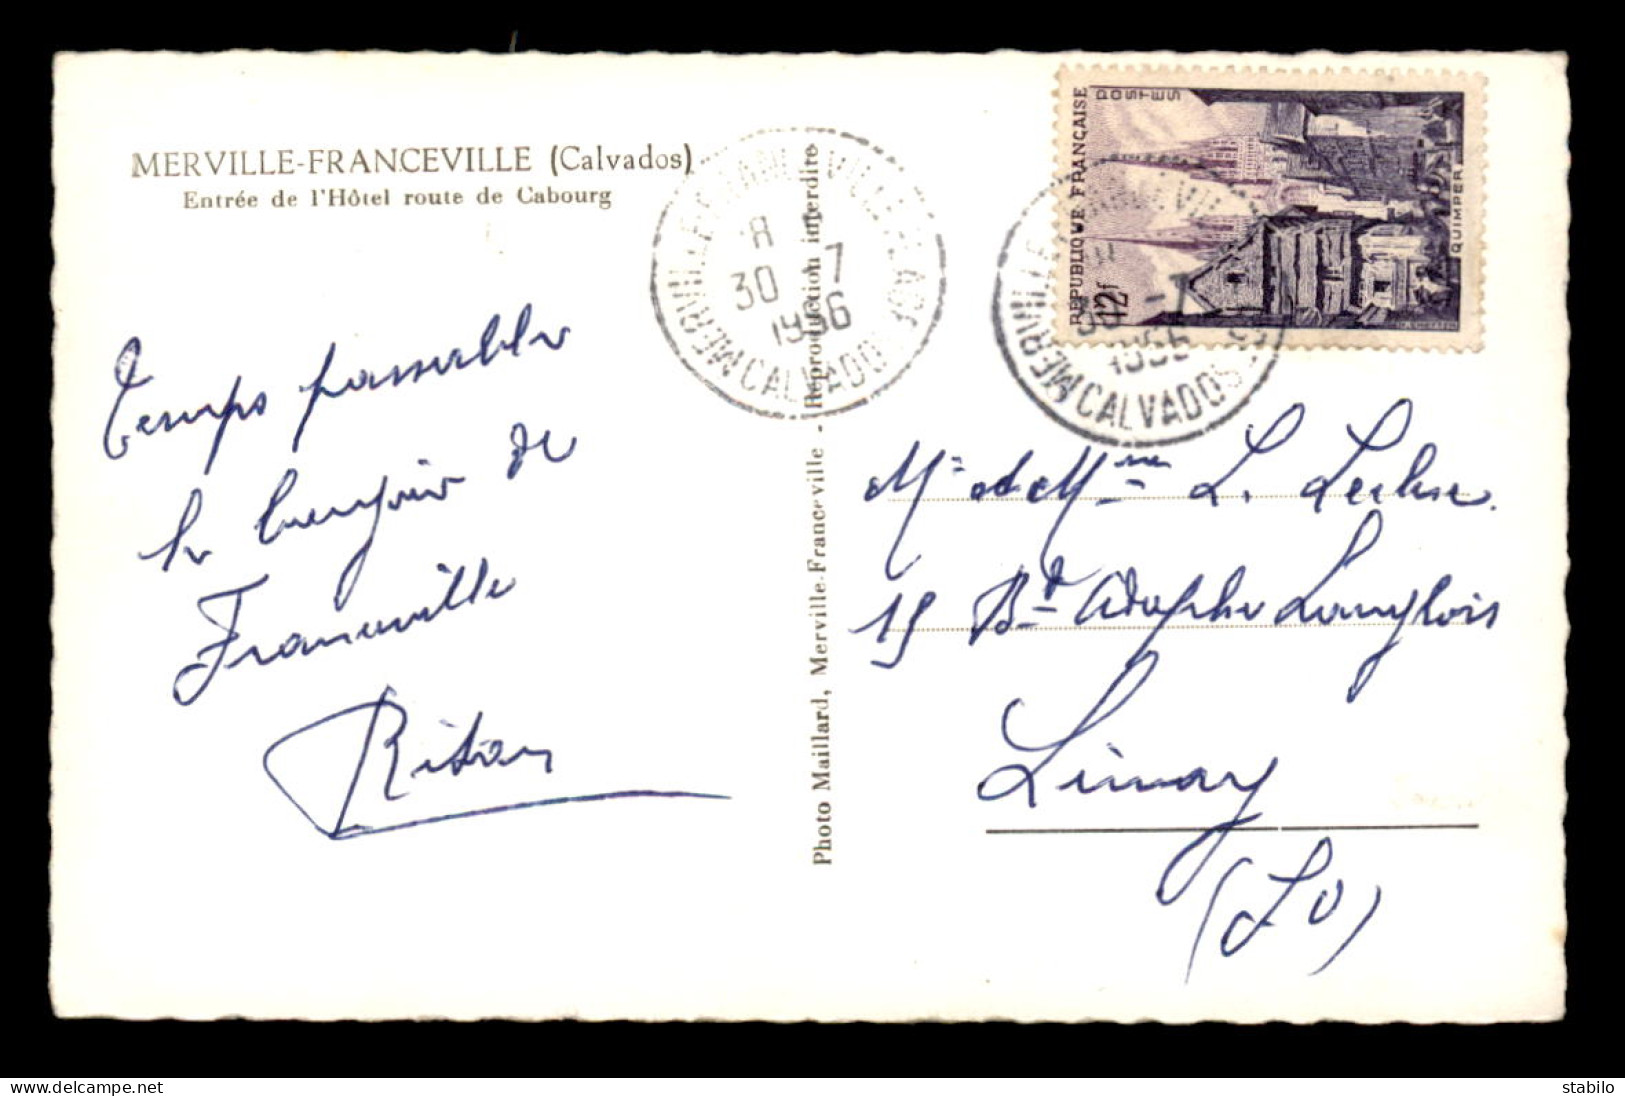 MERVILLE-FRANCEVILLE (Calvados)
Entrée de l'Hôtel route de Cabourg
Temps passable
le bonjour de
Franceville
Photo Maillard, Merville-Franceville - Reproduction interdite
MERVILLE FRANCEVILLE PLAGE
30 -7
1956
CALVADOS
MERVILLE
30 -7
1956
CALVADOS
REPUBLIQUE FRANÇAISE
POSTES
12f
QUIMPER
Mr et Mme L.
15 Bd Adolphe Langlois
Limay
(S O)
stabilo